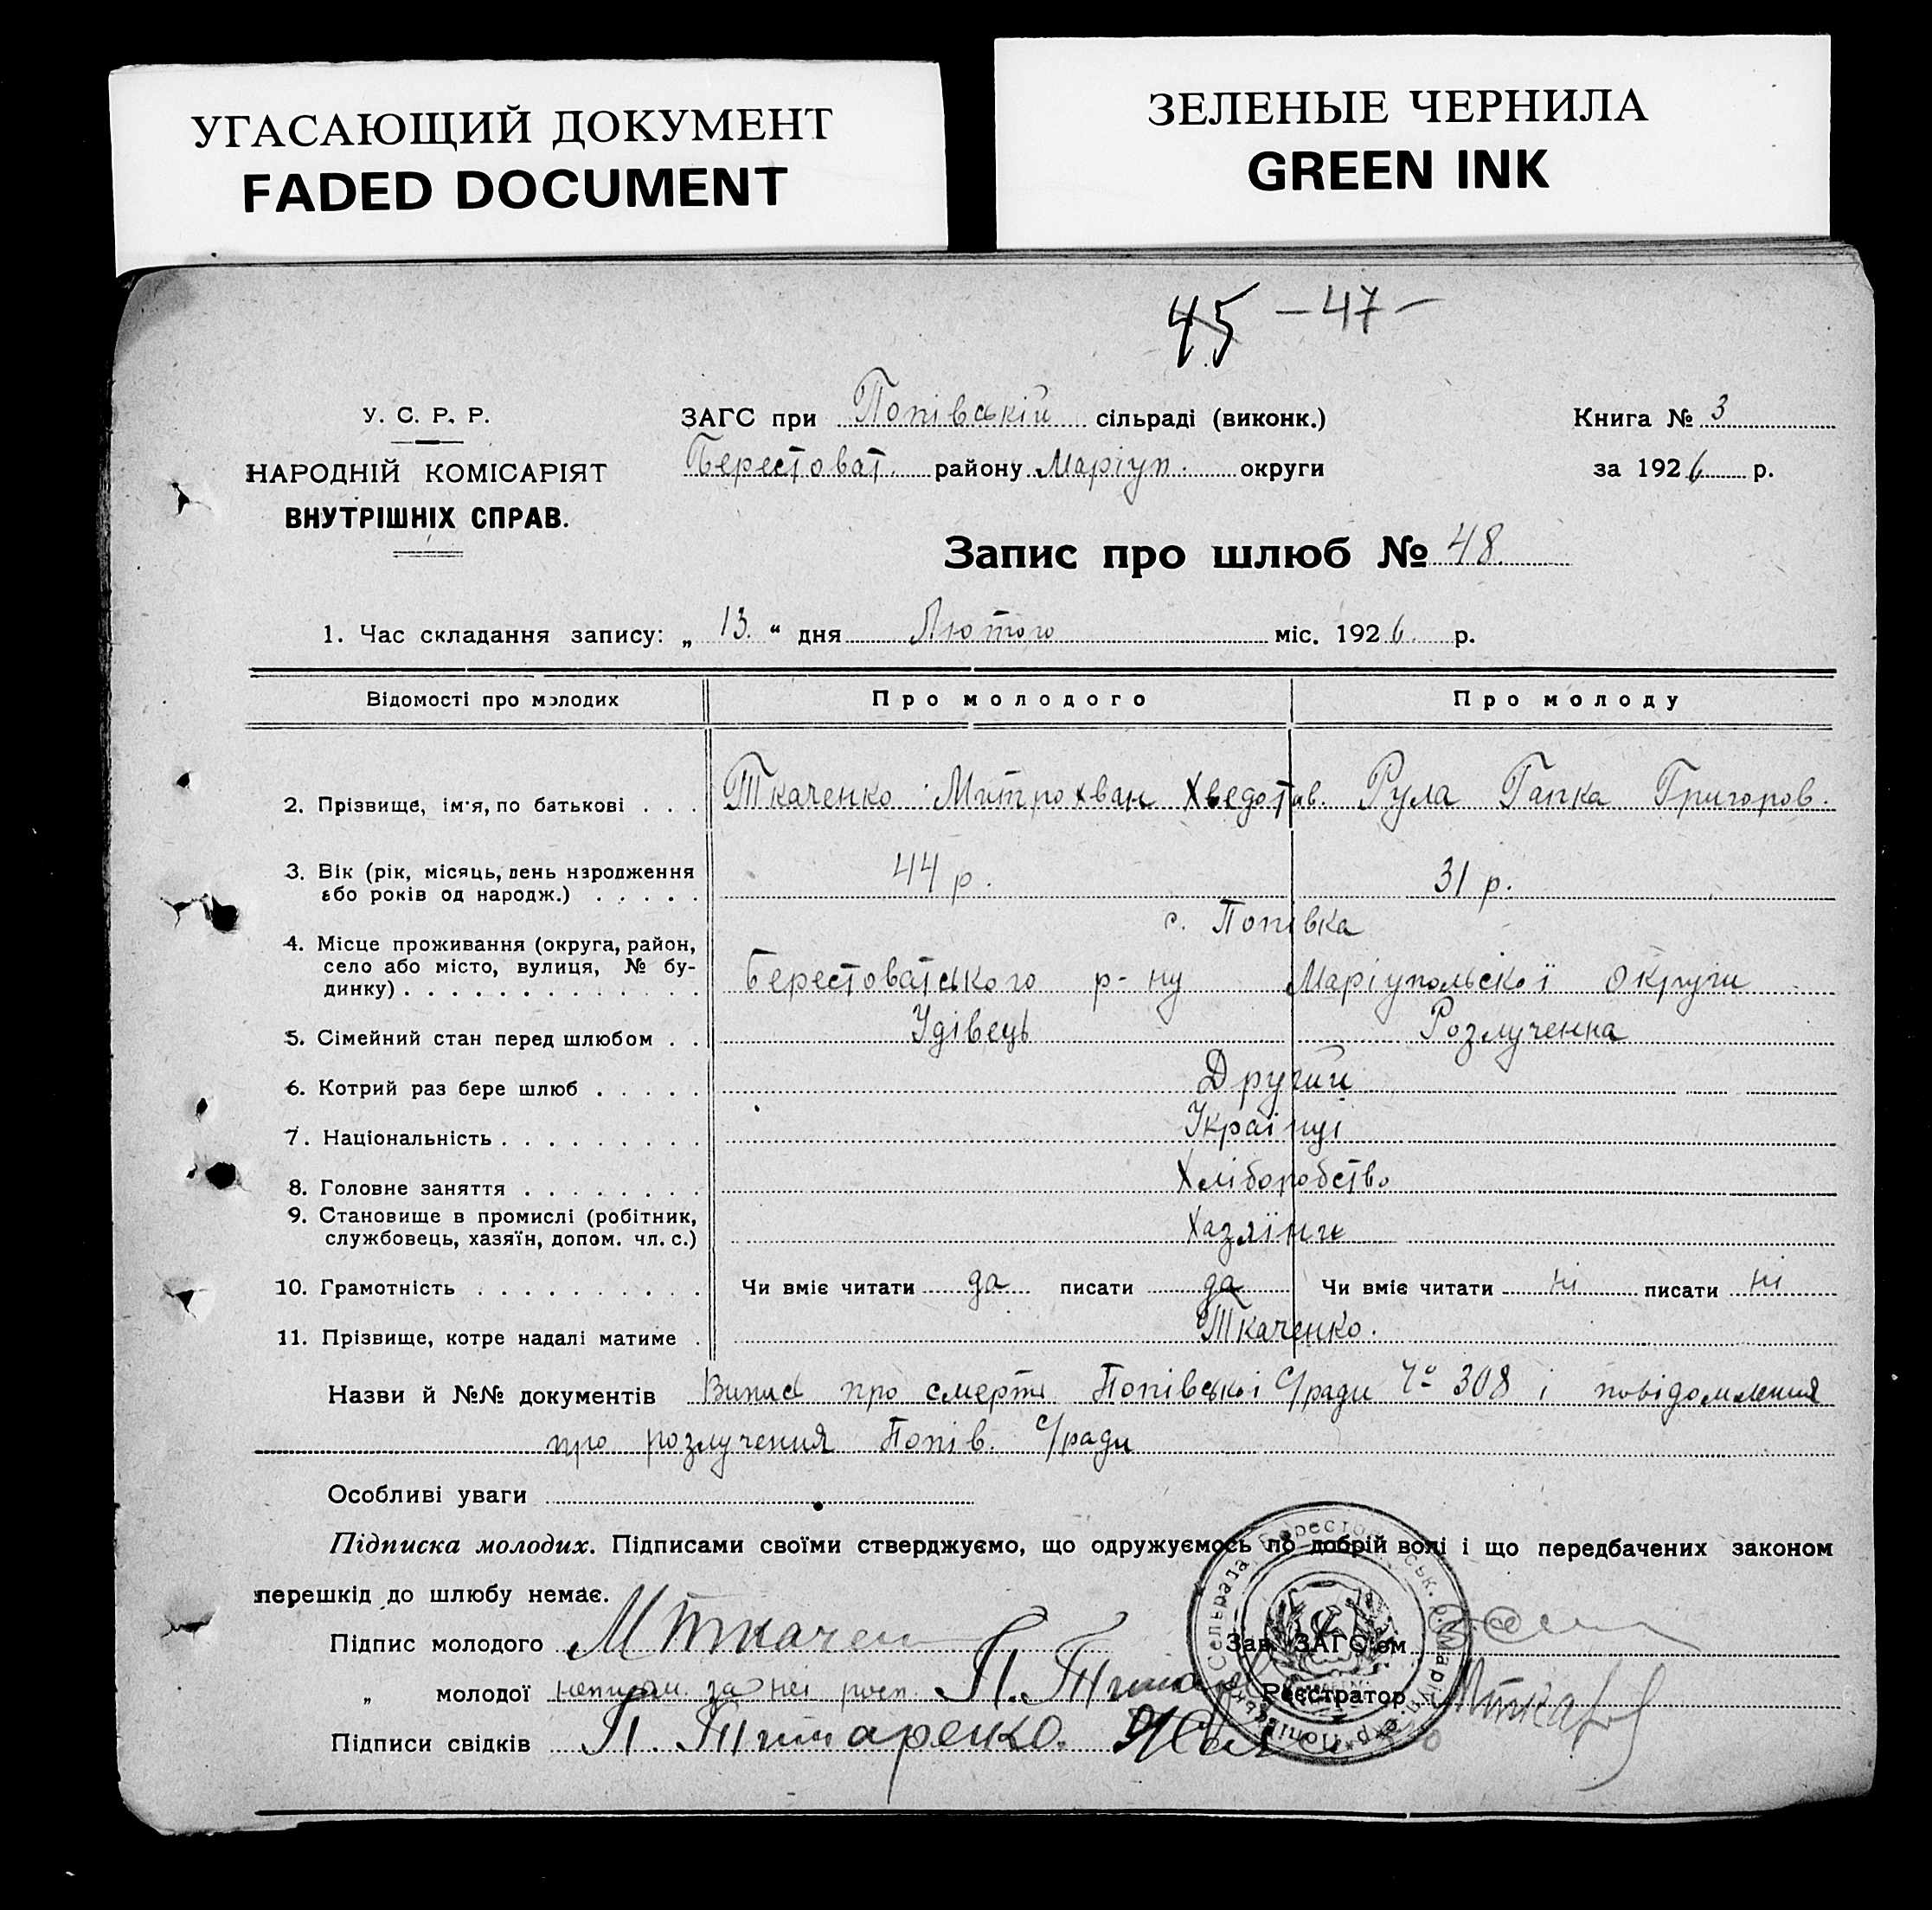 УГАСАЮЩИЙ ДОКУМЕНТ
FADED DOCUMENT
ЗЕЛЕНЫЕ ЧЕРНИЛА
GREEN INK
45 – 47 –
У. С. Р. Р.
НАРОДНІЙ КОМІСАРІЯТ
ВНУТРІШНІХ СПРАВ.
ЗАГС при Попівській сільраді (виконк.)
Берестоват. району Маріуп. округи
Книга № 3
за 1926 р.
Запис про шлюб № 48.
1. Час складання запису: „ 13. “ дня Лютого міс. 1926 р.
Відомості про молодих Про молодого Про молоду
2. Прізвище, ім'я, по батькові . . . Ткаченко Митрохван Хведотів. Рула Гапка Григоров.
3. Вік (рік, місяць, день народження
або років од народж.) . . . . . 44 р. 31 р.
с. Попівка
4. Місце проживання (округа, район,
село або місто, вулиця, № бу-
динку) . . . . . . . . . . . . . Берестоватського р-ну Маріупольскої Округи
5. Сімейний стан перед шлюбом . . Удівець Розлученна
6. Котрий раз бере шлюб . . . . . Другий
7. Національність . . . . . . . . . Українці
8. Головне заняття . . . . . . . . Хліборобство
9. Становище в промислі (робітник,
службовець, хазяїн, допом. чл. с.) Хазяїни
10. Грамотність . . . . . . . . . . Чи вміє читати да писати да Чи вміє читати ні писати ні
11. Прізвище, котре надалі матиме . Ткаченко.
Назви й №№ документів Випис про смерть Попівської С/ради Чо 308 і повідомлення
про розлучення Попів. С/ради
Особливі уваги
Підписка молодих. Підписами своїми стверджуємо, що одружуємось по добрій волі і що передбачених законом
перешкід до шлюбу немає.
Підпис молодого М Ткачен Зав. ЗАГС'ом
„ молодої неписм. за неї росп. П. Титар Реєстратор
Підписи свідків П. Титаренко.